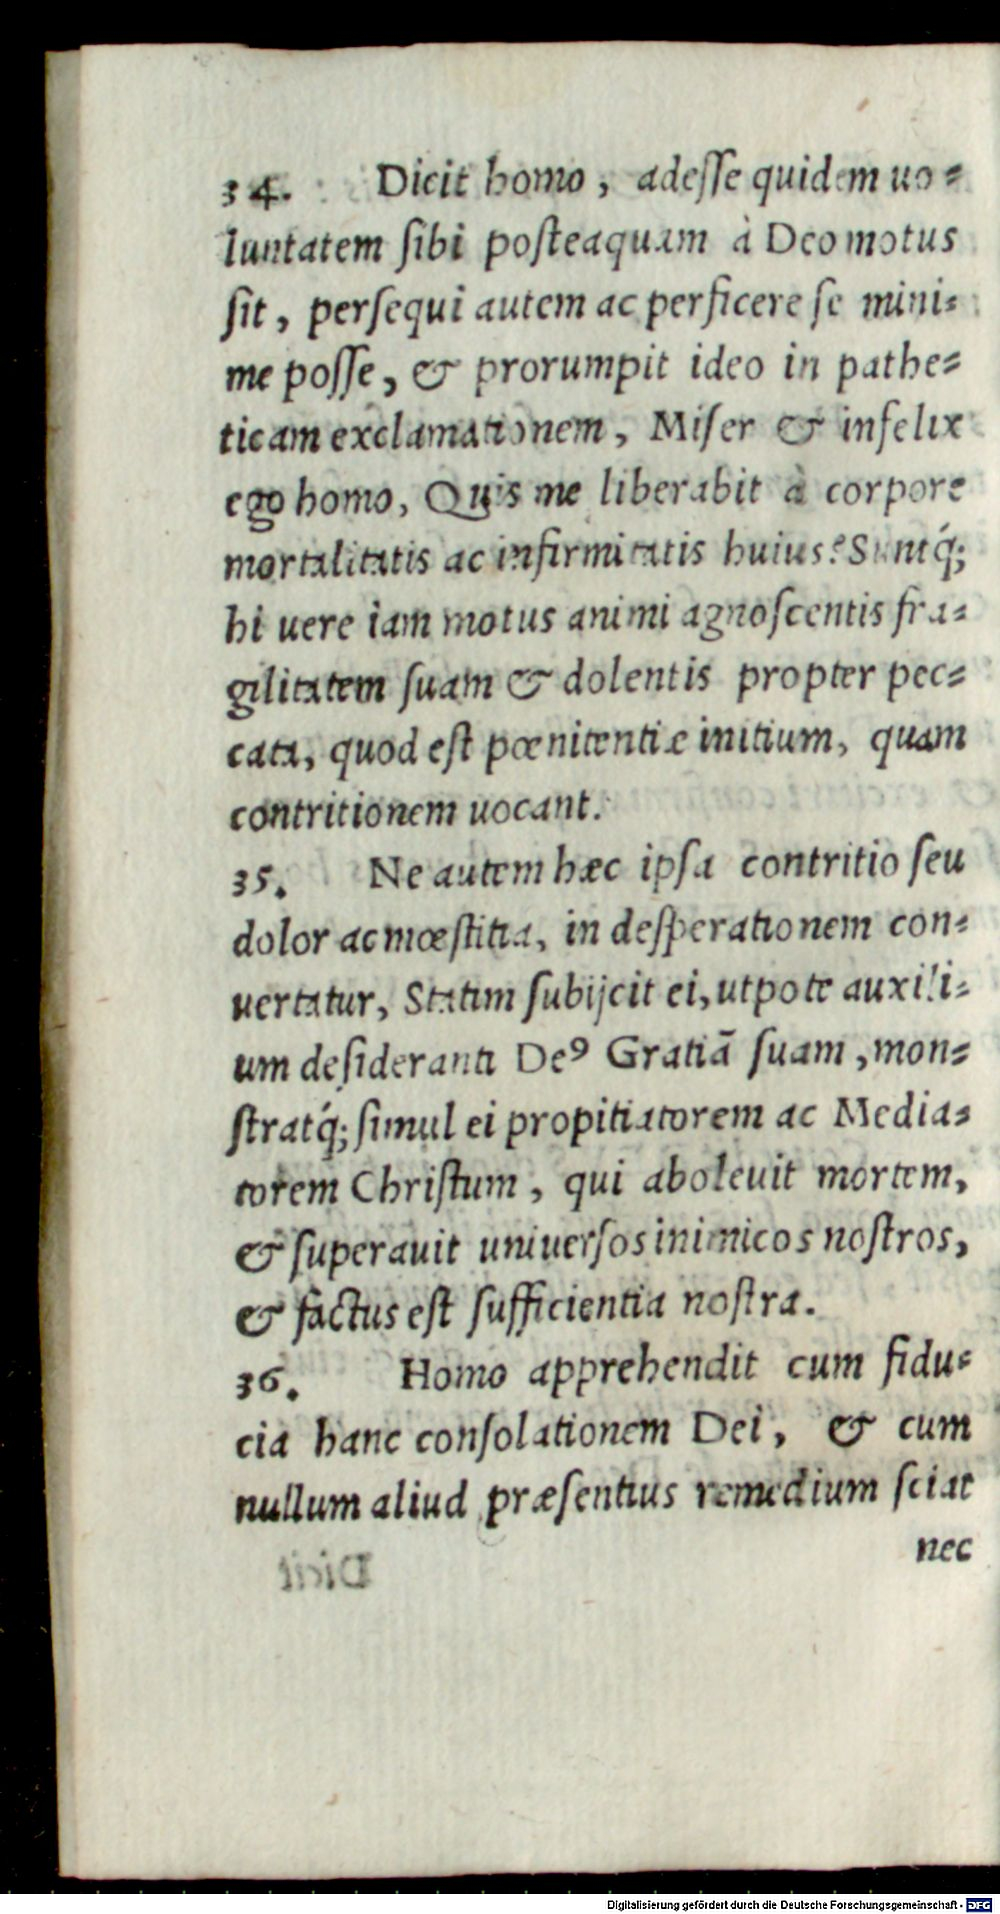 34. Dicit homo, adesse quidem uo-
luntatem sibi posteaquam à Deo motus
sit, persequi autem ac perficere se mini-
me posse, & prorumpit ideo in pathe-
ticam exclamationem, Miser & infelix
ego homo, Quis me liberabit à corpore
mortalitatis ac infirmitatis huius? Suntq́;
hi uere iam motus animi agnoscentis fra-
gilitatem suam & dolentis propter pec-
cata, quod est pœnitentiæ initium, quam
contritionem uocant.
35. Ne autem hæc ipsa contritio seu
dolor ac mœstitia, in desperationem con-
uertatur, Statim subijcit ei, utpote auxili-
um desideranti Deꝰ Gratiā suam, mon-
stratq́; simul ei propitiatorem ac Media-
torem Christum, qui aboleuit mortem,
& superauit uniuersos inimicos nostros,
& factus est sufficientia nostra.
36. Homo apprehendit cum fidu-
cia hanc consolationem Dei, & cum
nullum aliud præsentius remedium sciat
nec
Dicit
Digitalisierung gefördert durch die Deutsche Forschungsgemeinschaft - DFG